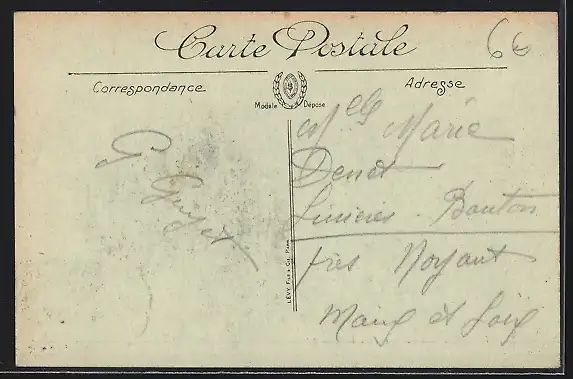 Carte Postale
6€
Correspondance
Adresse
Modèle Déposé
Melle Marie
Denet
Linières Bouton
près Noyant
Maine et Loire
G. Guyet
LÉVY FILS & CIE PARIS